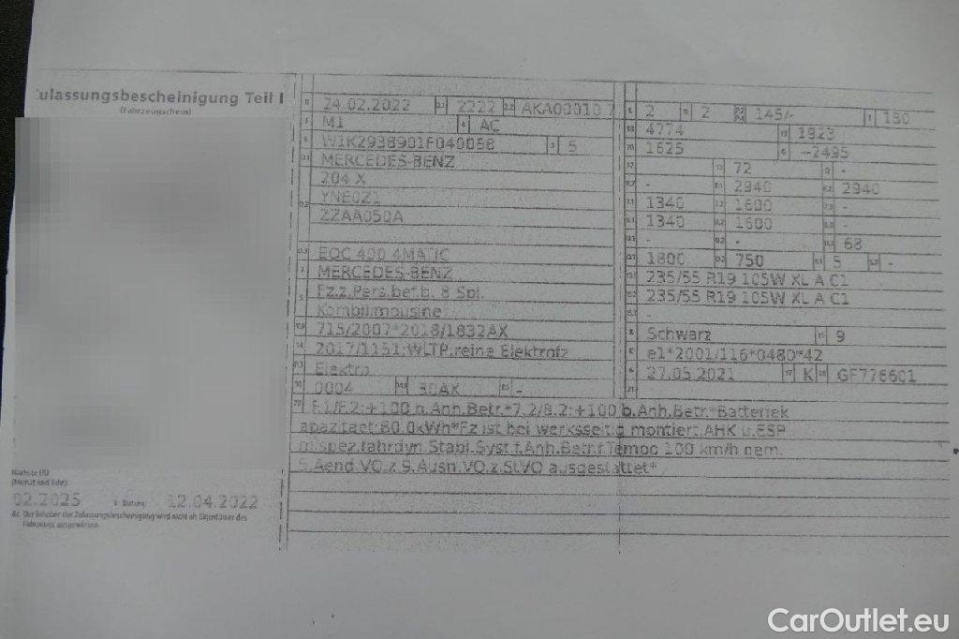 Zulassungsbescheinigung Teil I
(Fahrzeugschein)
24.02.2022 2222 AKA00010 7
M1 AC
W1K2938901F040058 5
MERCEDES-BENZ
204 X
YNE0Z1
ZZAA050A
EQC 400 4MATIC
MERCEDES-BENZ
Fz.z.Pers.bef.b. 8 Spl.
Kombilimousine
715/2007*2018/1832AX
2017/1151;WLTP;reine Elektrofz
Elektro
0004 30AX -
2 2 145/- 180
4774 1923
1625 -2495
72 -
- 2940 2940
1340 1600 -
1340 1600 -
- - 68
1800 750 5 -
235/55 R19 105W XL A C1
235/55 R19 105W XL A C1
-
Schwarz 9
e1*2001/116*0480*42
27.05.2021 K GF776601
F.1/F.2:+100 b.Anh.Betr.*7.2/8.2:+100 b.Anh.Betr.*Batteriek
apazitaet:80.0kWh*Fz ist bei werksseitig montiert.AHK u.ESP
m.spez.fahrdyn.Stabi.Syst.f.Anh.Betr.f.Tempo 100 km/h gem.
Aend.VO.z.9.Ausn.VO.z.StVO ausgestattet*
Nächste HU
(Monat und Jahr)
02.2025 Datum 12.04.2022
Der Inhaber der Zulassungsbescheinigung wird nicht als Eigentümer des
Fahrzeugs ausgewiesen.
CarOutlet.eu